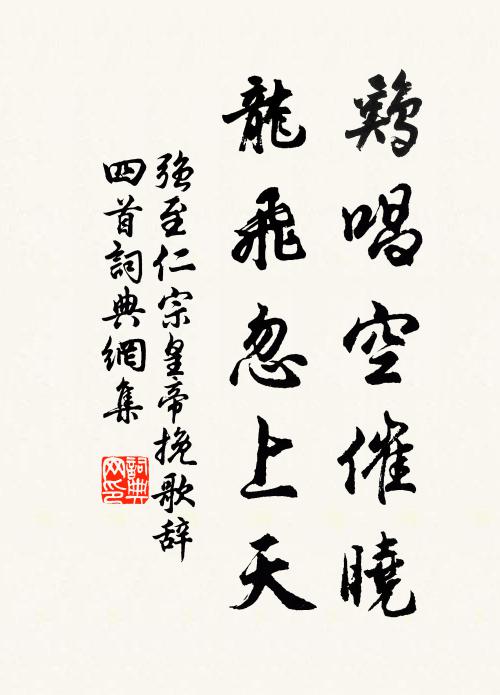 鷄唱空催曉
龍飛忽上天
强至仁宗皇帝挽歌辞
四首詞典網集
詞典
网印